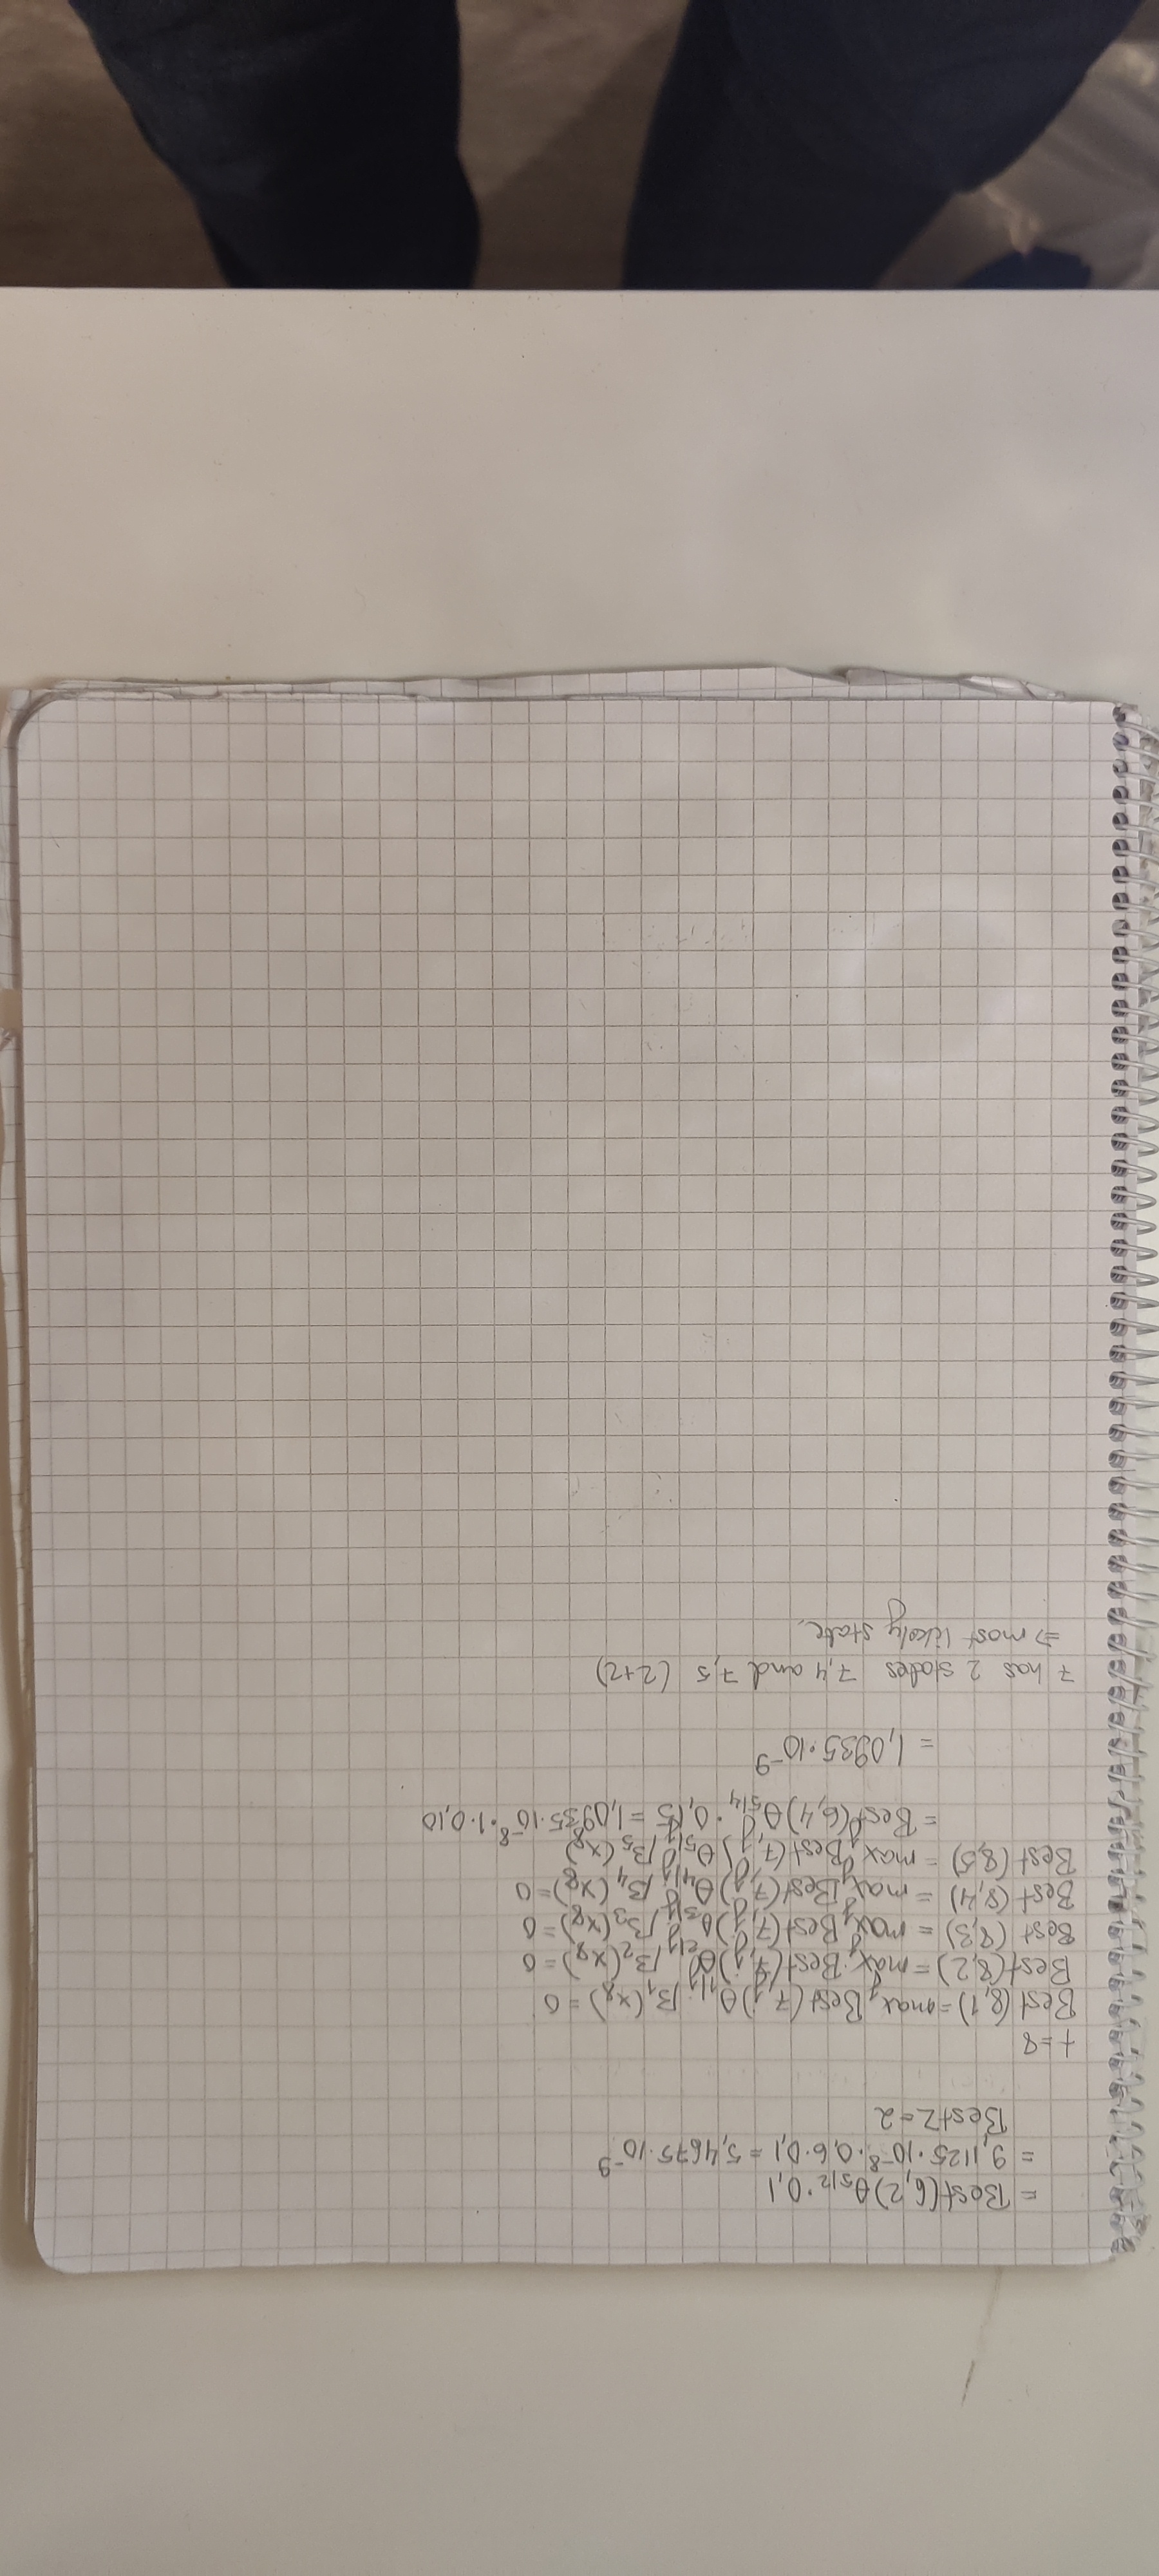 = Best(6,2)θ₅|₂·0,1
= 9,1125·10⁻⁸·0,6·0,1 = 5,4675·10⁻⁹
BestZ=2
t=8
Best(8,1)=maxⱼBest(7,j)θ₁|ⱼ β₁(x₈)=0
Best(8,2)=maxⱼBest(7,j)θ₂|ⱼ β₂(x₈)=0
Best(8,3)=maxⱼBest(7,j)θ₃|ⱼ β₃(x₈)=0
Best(8,4)=maxⱼBest(7,j)θ₄|ⱼ β₄(x₈)=0
Best(8,5)=maxⱼBest(7,j)θ₅|ⱼ β₅(x₈)
= Best(6,4)θ₅|₄·0,15 = 1,0935·10⁻⁸·1·0,10
= 1,0935·10⁻⁹
7 has 2 states 7,4 and 7,5 (2+2)
⇒ most likely state.